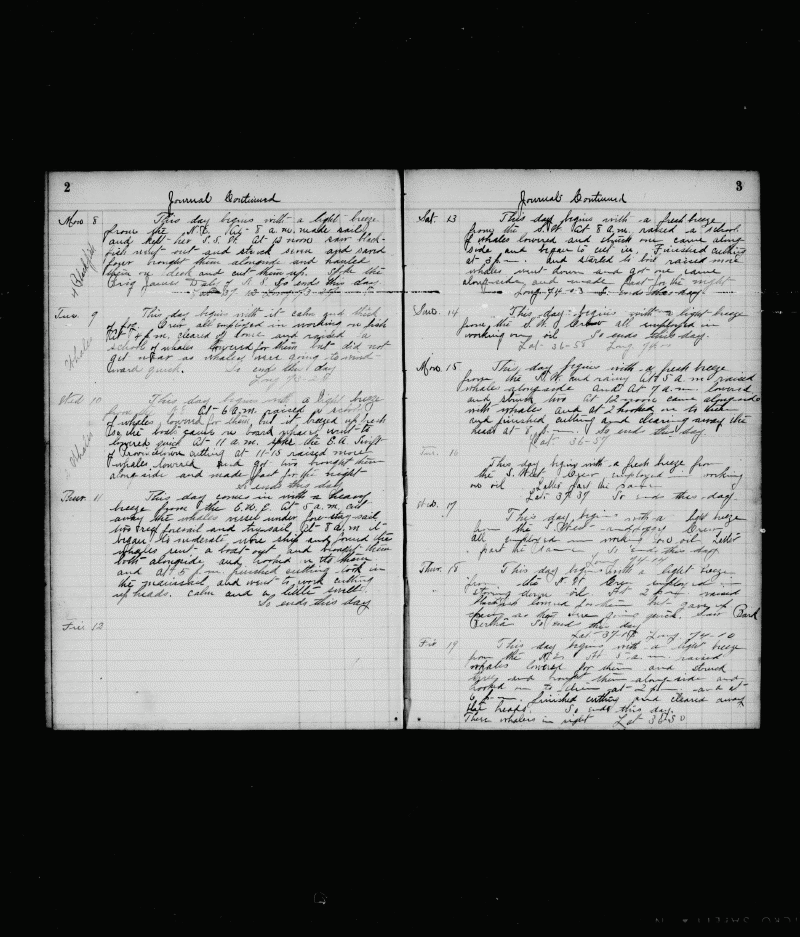 2
Journal Continued
Mon 8 This day begins with a light breeze
from the N.E. At 8 a.m. made sail
and kept her S.S.W. At 12 noon saw black-
fish went out and struck seven and saved
four brought them alongside and hauled
them on deck and cut them up. Spoke the
Brig James Daly of N.S. So ends this day
4 Blackfish
Tue. 9 This day begins with it calm and thick
of fog. Crew all employed in working on fish
At 4 p.m. cleared up some and raised a
school of whales lowered for them but did not
get near as whales were going to wind-
ward quick. So ends this day
Whales
Wed 10 This day begins with a light breeze
At 6 a.m. raised a school
of whales lowered for them but it breezed up fresh
so the boats came on board whales went to
quick At 11 a.m. spoke the E.A. Swift
of Provincetown cutting at 11-15 raised more
whales lowered and got two brought them
alongside and made fast for the night
So ends this day
Whales
Thur. 11 This day comes in with a heavy
breeze from the E.N.E. At 5 a.m. cut
away the whales vessel under fore-stay-sail
two reef foresail and trysail At 8 a.m. it
began to moderate wore ship and found the
whales sent a boat out and brought them
both alongside and hooked on to them
and at 5 p.m. finished cutting took in
the mainsail and went to work cutting
up heads. calm and a little swell.
So ends this day
Fri 12
3
Journal Continued
Sat. 13 This day begins with a fresh breeze
from the S.W. At 8 a.m. raised a school
of whales lowered and struck one came along-
side and began to cut in. Finished cutting
at 3 p.m. and started to boil raised more
whales went down and got one came
alongside and made fast for the night
Long 74-03 So ends this day
Sun. 14 This day begins with a light breeze
from the S.W. Crew all employed in
working on oil So ends this day.
Lat 36-58 Long 74-00
Mon. 15 This day begins with a fresh breeze
from the N.W. and rainy At 5 a.m. raised
whales alongside and at 7 a.m. lowered
and struck two At 12 noon came alongside
with whales and at 2 hooked on to them
and finished cutting and clearing away the
heads at 8 p.m. So ends this day
Lat 36-57
Tue. 16 This day begins with a fresh breeze from
the S.W. Crew employed in working
on oil Latter part the same
Lat 37-37 So ends this day
Wed. 17 This day begins with a light breeze
from the S. West Crew
all employed in working on oil Latter
part the same So ends this day
Long 74-14
Thur. 18 This day begins with a light breeze
from the N.W. Crew employed in
stowing down oil. At 2 p.m. raised
lowered for them but gave up
as they were going quick. Saw Bark
Bertha So ends this day
Lat 37-18 Long 74-10
Fri 19 This day begins with a light breeze
from the N.E. At 5 a.m. raised
whales lowered for them and struck
and brought them alongside and
hooked on to them at 2 p.m. and at
6 p.m. finished cutting and cleared away
the heads. So ends this day.
Three whalers in sight Lat 36-50